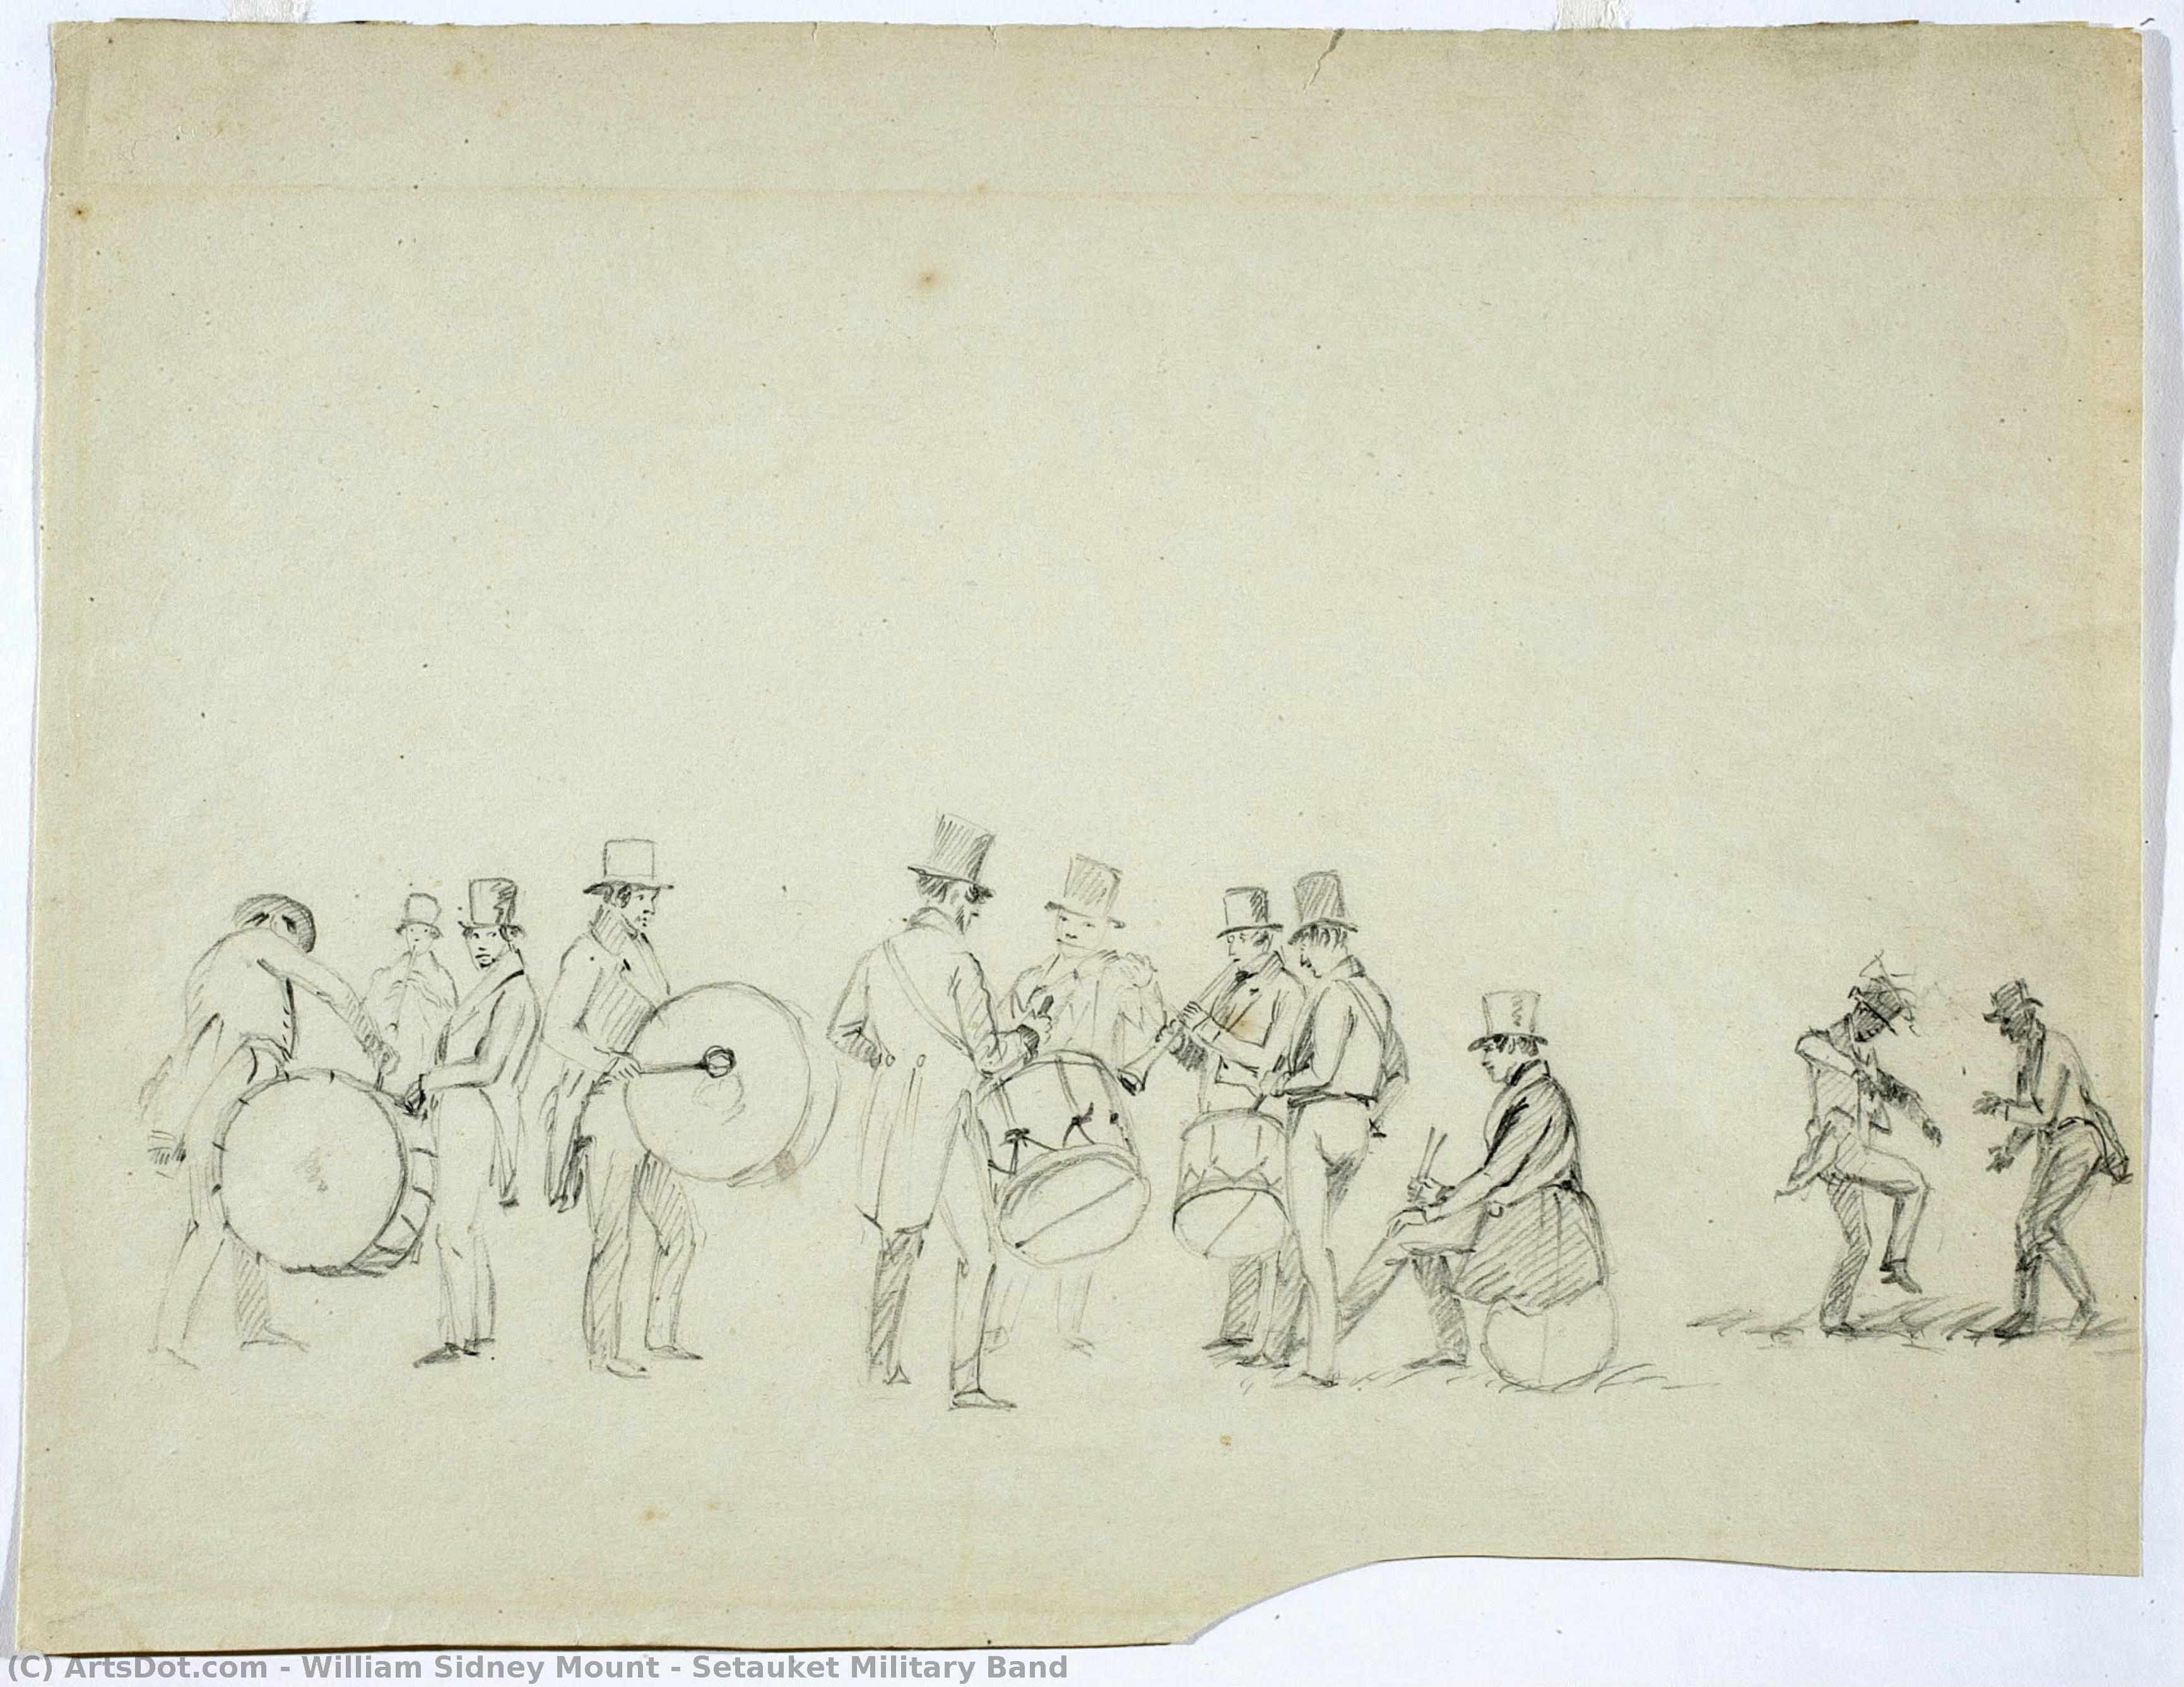 (C) ArtsDot.com - William Sidney Mount - Setauket Military Band